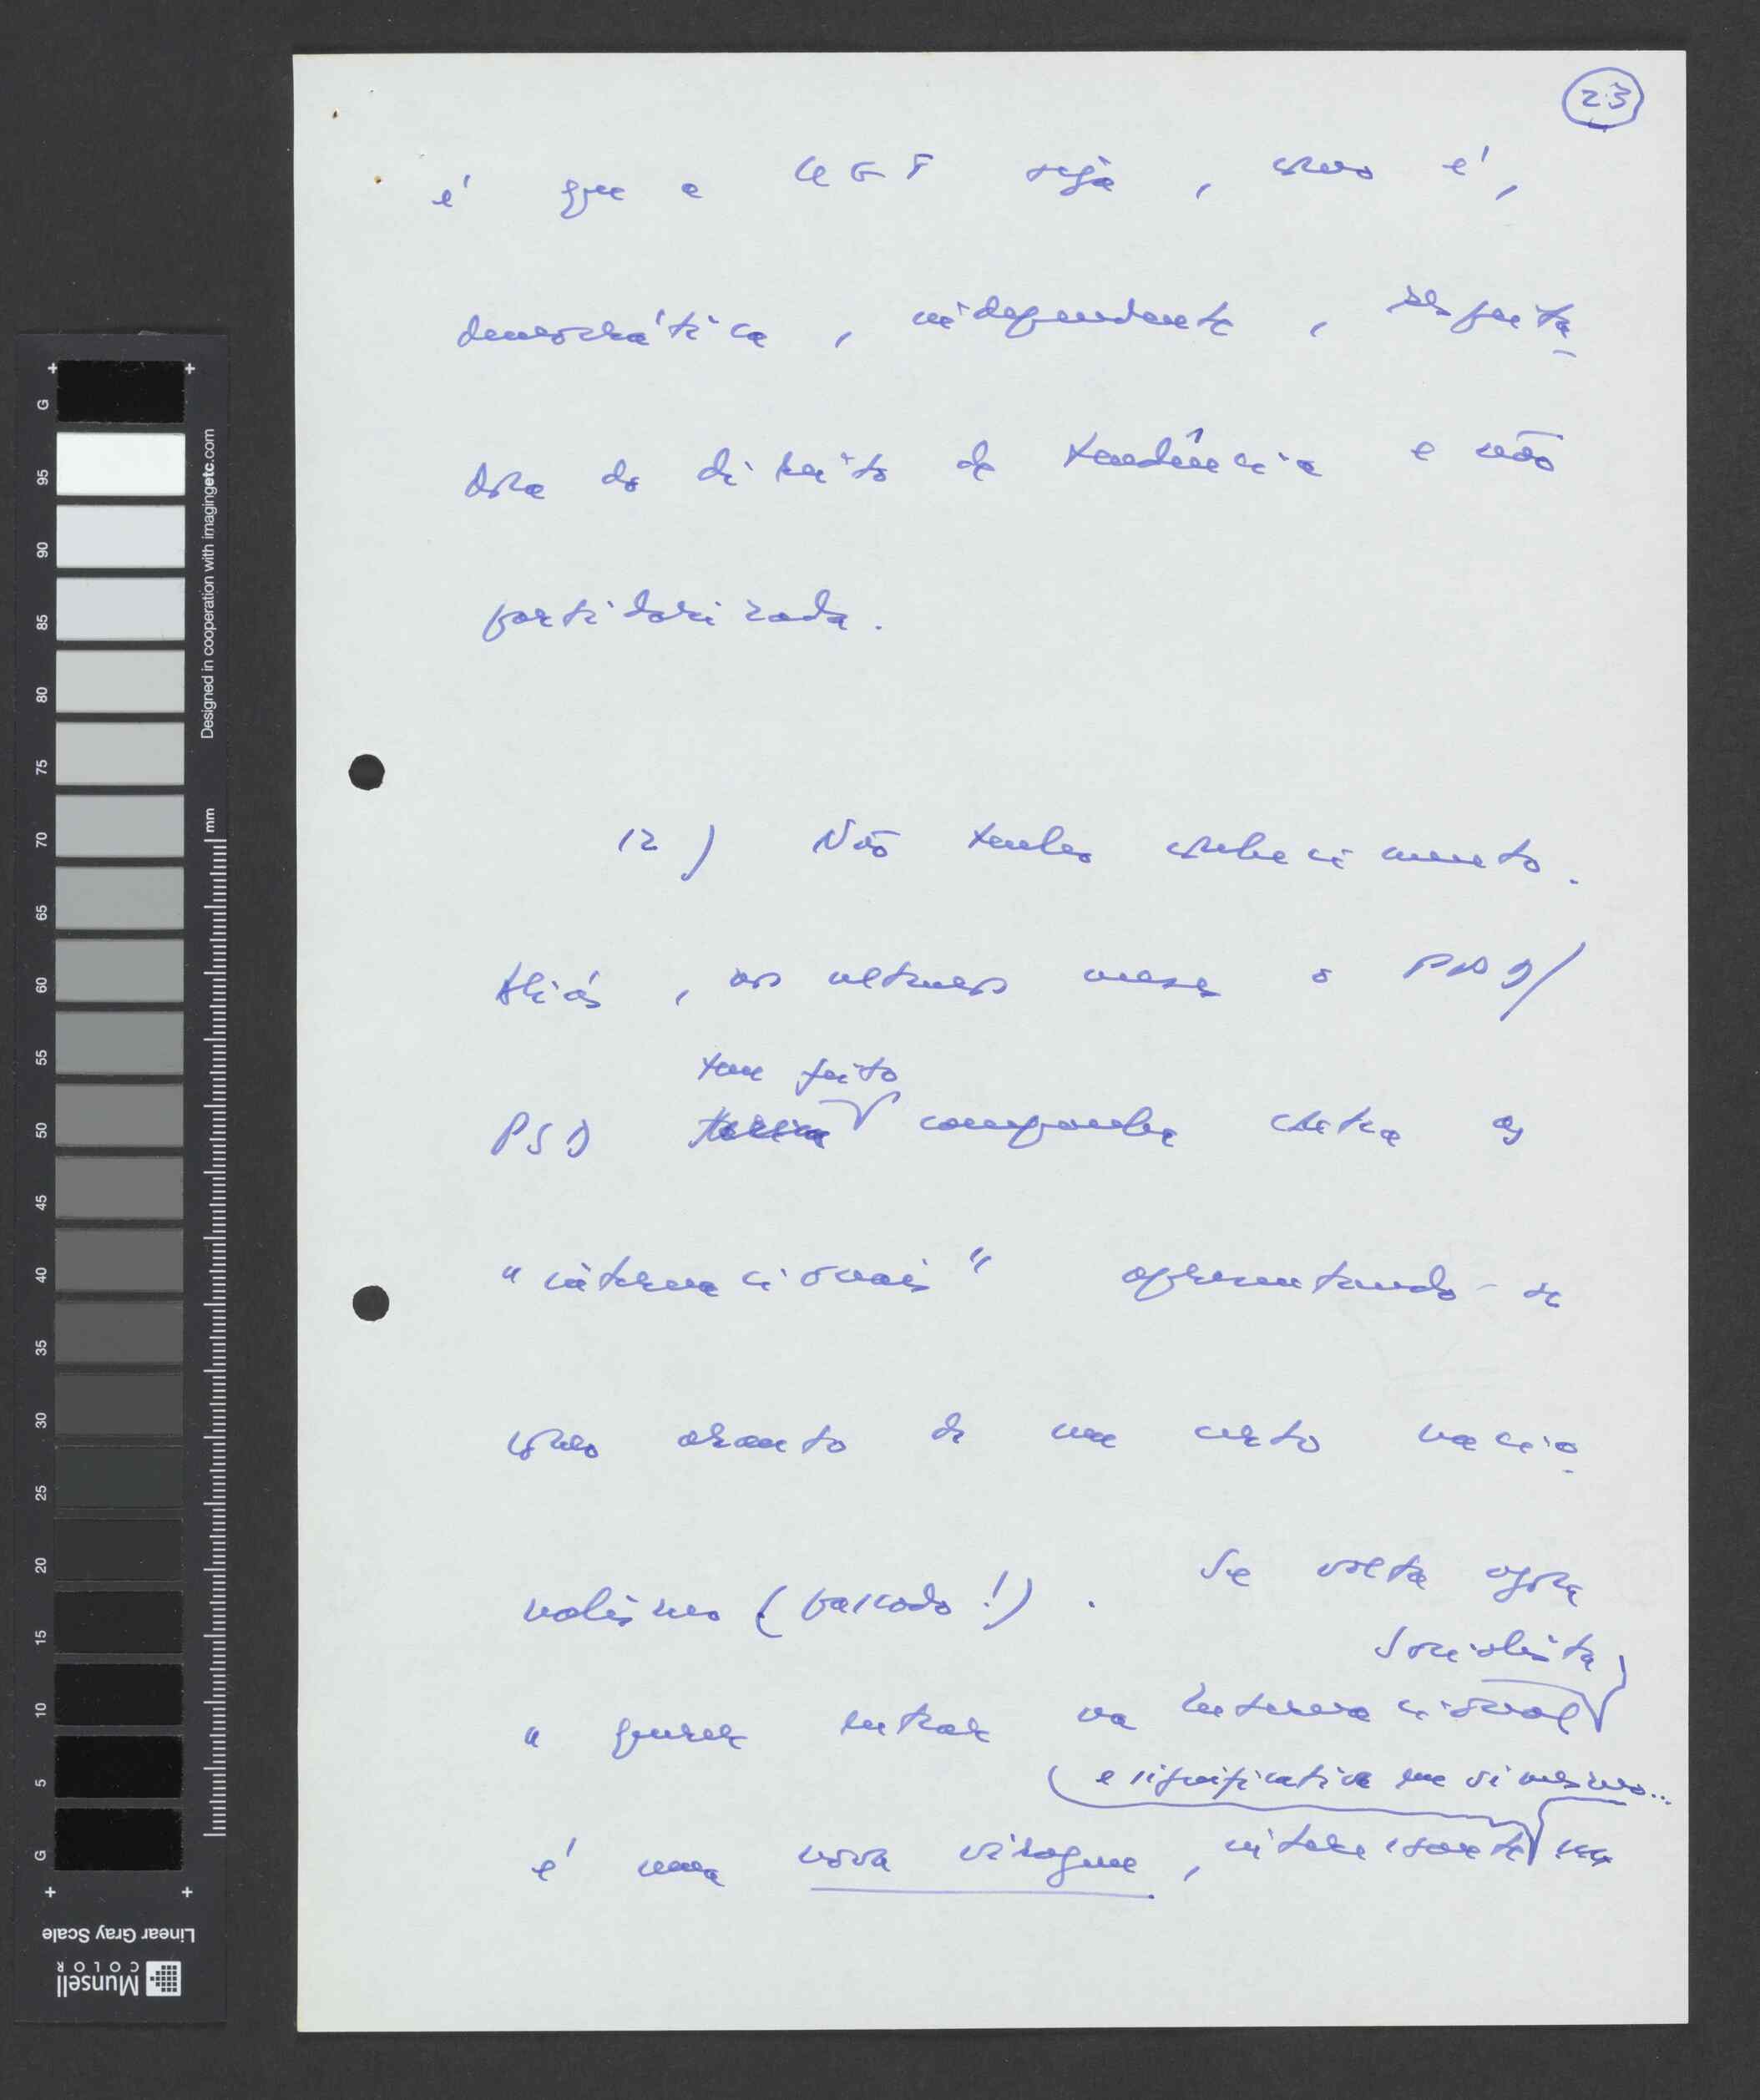 23
é que a UGT seja, como é,
democrática, independente, respeita-
dora do direito de tendência e não
partidarizada.
12) Não tenho conhecimento.
Aliás, nos ultimos meses o PPD/
tem feito
PSD campanha contra as
"internacionais" apresentando-se
como arauto de um certo nacio-
nalismo (bacoco!). Se volta agora
Socialista
a querer entrar na Internacional
e significativa em si mesmo...
é uma nova viragem, interessante
Designed in cooperation with imagingetc.com
mm
G 95 90 85 80 75 70 65 60 55 50 45 40 35 30 25 20 15 10 5 G
Linear Gray Scale
Munsell
COLOR